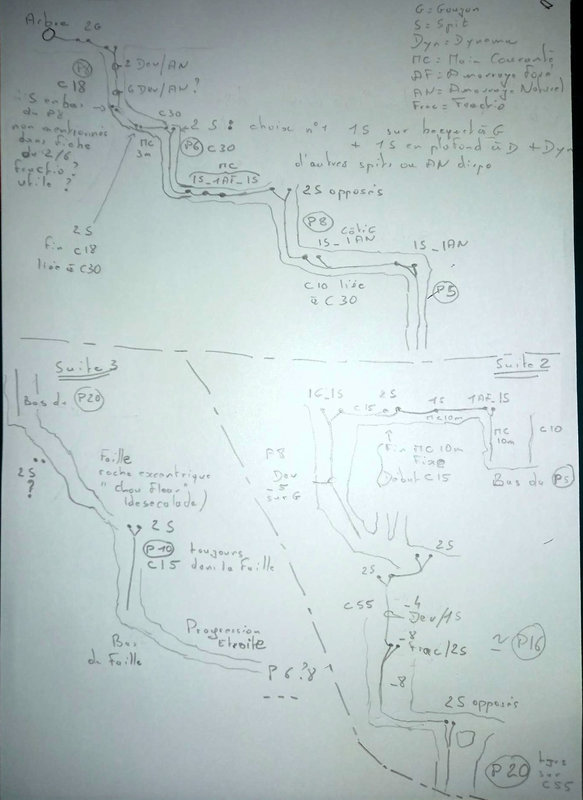 G = Goujon
S = Spit
Dyn = Dyneema
MC = Main Courante
AF = Amarrage Foré
AN = Amarrage Naturel
Frac = Fractio
Arbre 2G
P8
C18
2 Dev/AN
6 Dev/AN ?
1S en bas
du P8
non mentionnés
dans fiche
du 2/6
fractio ?
utile ?
C30
MC
3m
2S : choix n°1 1S sur becquet à G
+ 1S en plafond à D + Dyn
d'autres spits ou AN dispo
P6 C30
MC
1S_1AF_1S
2S opposés
2S
fin C18
liée à C30
P8
côté G
1S_1AN
1S_1AN
C10 liée
à C30
P5
Suite 2
1G_1S
C15
2S
1S
1AF_1S
MC10m
MC
10m
C10
Fin MC 10m
Fixe
Début C15
Bas du P5
P8
Dev
-5
sur G
2S
2S
C55
-4
Dev/1S
-8
Frac/2S
~ P16
-8
2S opposés
P20 tjrs
sur
C55
Suite 3
Bas du P20
2S
?
Faille
roche excentrique
"chou fleur"
(desescalade)
2S
P10 toujours
C15 dans la Faille
Bas
de Faille
Progression
Etroite
P6 ? 8